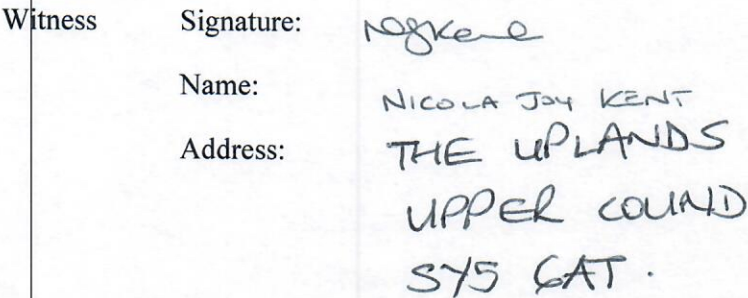 Witness Signature: NJKent
Name: NICOLA JOY KENT
Address: THE UPLANDS
UPPER COUND
SY5 6AT.